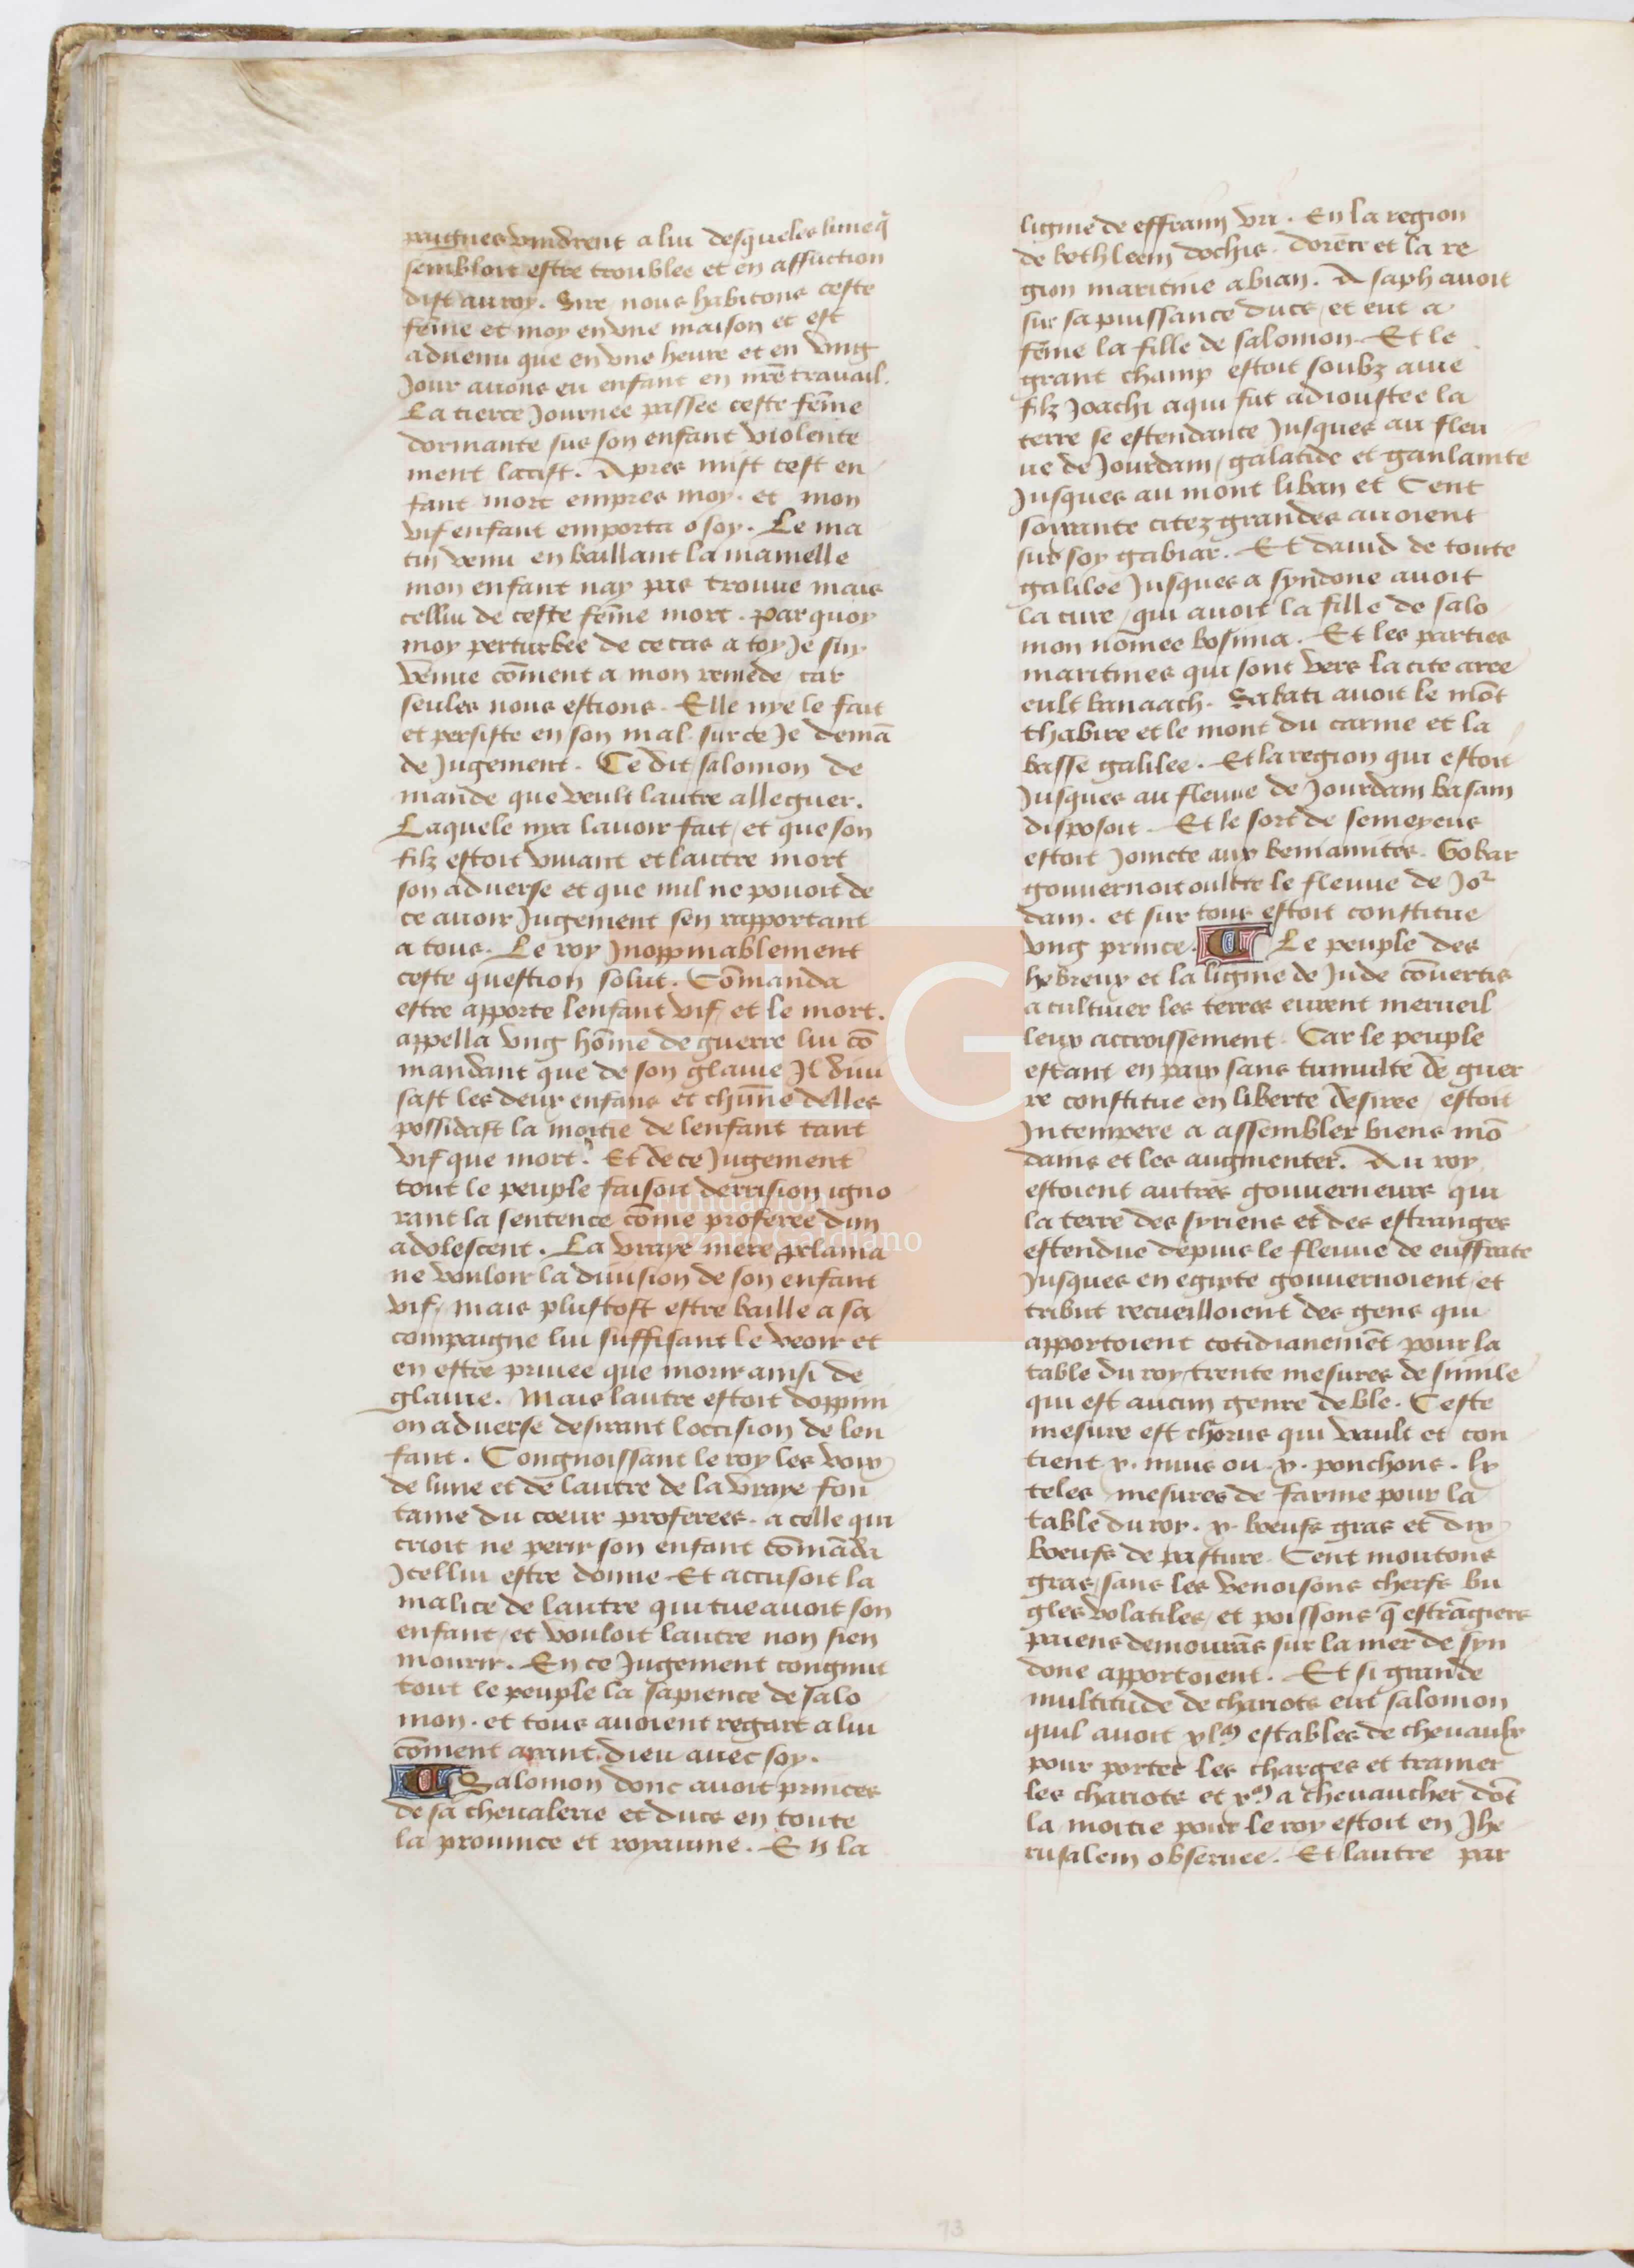 paignes vindrent a lui desqueles lune q̃
sembloit estre troublee et en affliction
dist au roy. Sire nous habitons ceste
fẽme et moy en vne maison et est
aduenu que en vne heure et en vng
Jour auons eu enfant en nr̃e trauail.
La tierce Journee passee ceste fẽme
dormante sus son enfant violente
ment lattist. Apres mist cest en
fant mort empres moy. et mon
vif enfant emporta o soy. Le ma
tin venu en baillant la mamelle
mon enfant nay pas trouue mais
cellui de ceste fẽme mort. par quoy
moy perturbee de ce cas a toy Je suy
venue cõment a mon remede / car
seules nous estions. Elle nye le fait
et persiste en son mal. sur ce Je demã
de Jugement. Ce dit salomon de
mande que veult lautre alleguer.
Laquele nya lauoir fait / et que son
filz estoit viuant et lautre mort
son aduerse et que nul ne pouoit de
ce auoir Jugement sen rapportant
a tous. Le roy Inoppinablement
ceste question solut. Cõmanda
estre apporte lenfant vif / et le mort.
appella vng hõme de guerre lui cõ
mandant que de son glaiue Il diui
sast les deux enfans et chũne delles
possidast la moitie de lenfant tant
vif que mort. Et de ce Jugement
tout le peuple faisoit derrision igno
rant la sentence cõme proferee dun
adolescent. La vraye mere p̱clama
ne vouloir la diuision de son enfant
vif / mais plustost estre baille a sa
compaigne lui suffisant le veoir et
en estre priuee que morir ainsi de
glaiue. Mais lautre estoit doppini
on aduerse desirant loccision de len
fant. Congnoissant le roy les voix
de lune et de lautre de la vraye fon
taine du coeur proferees. a celle qui
crioit ne perir son enfant cõmãda
Jcellui estre donne Et accusoit la
malice de lautre qui tue auoit son
enfant / et vouloit lautre non sien
mourir. En ce Jugement congnut
tout le peuple la sapience de salo
mon. et tous auoient regart a lui
cõment ayant dieu auec soy.
Salomon donc auoit princes
de sa cheualerie et ducs en toute
la prouince et royaume. En la
lignie de effraim vri. En la region
de bethleem dochis. dorẽce et la re
gion maritine abian. Asaph auoit
sur sa puissance duce / et eut a
fẽme la fille de salomon. Et le
grant champ estoit soubz aine
filz Joachi a qui fut adioustee la
terre se estendante Jusques au fleu
ue de Jourdain / galatide et ganlanite
Jusques au mont liban et Cent
soixante citez grandes auoient
sur soy gabiar. Et dauid de toute
galilee Jusques a syndone auoit
la cure / qui auoit la fille de salo
mon nõmee bosima. Et les parties
maritines qui sont vers la cite aree
eult banaach. Sabati auoit le mõt
thabire et le mont du carme et la
basse galilee. Et la region qui estoit
Jusques au fleuue de Jourdain basam
disposoit. Et le sort de semeyens
estoit Joincte aux beniamites. Gobar
gouuernoit oultre le fleuue de Jor
dain. et sur tous estoit constitue
vng prince. Le peuple des
hebreux et la lignie de Jude cõuertis
a cultiuer les terres eurent merueil
leux accroissement. Car le peuple
estant en paix sans tumulte de guer
re constitue en liberte desiree / estoit
Intempere a assembler biens mõ
dains et les augmenter. Au roy
estoient autres gouuerneurs qui
la terre des syriens et des estranges
estendue depuis le fleuue de euffrate
Jusques en egipte gouuernoient / et
tribut recueilloient des gens qui
apportoient cotidianemẽt pour la
table du roy / trente mesures de simile
qui est aucun genre de ble. Ceste
mesure est chorus qui vault et con
tient x. muis ou. x. ponchons. lx
teles mesures de farine pour la
table du roy. x. boeufs gras et dix
boeufs de pasture. Cent moutons
gras / sans les venoisons cherfs bu
gles volatiles / et poissons q̃ estrãgiers
paiens demourãs sur la mer de syn
done apportoient. Et si grande
multitude de chariots eut salomon
quil auoit xlm estables de cheuaulx
pour porter les charges et trainer
les chariots et xm a cheuaucher dõt
la moitie pour le roy estoit en Jhe
rusalem obseruee. Et lautre par
Fundación
Lázaro Galdiano
73